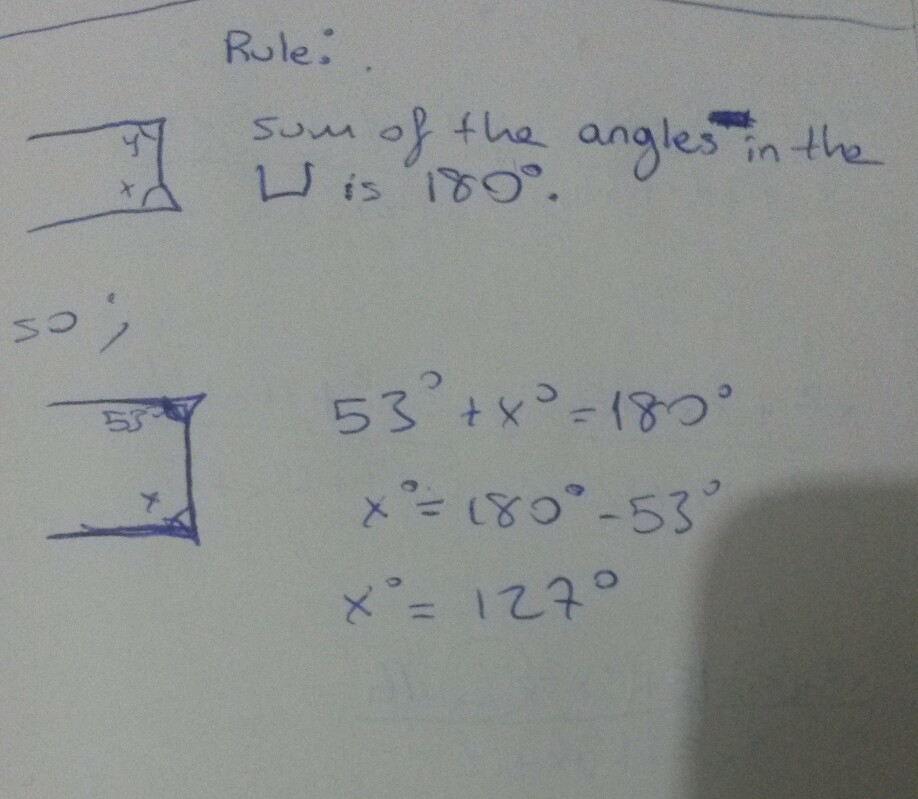 Rule:
y
sum of the angles in the
x
⊔ is 180°.
so;
53° + x° = 180°
53°
x
x° = 180° - 53°
x° = 127°